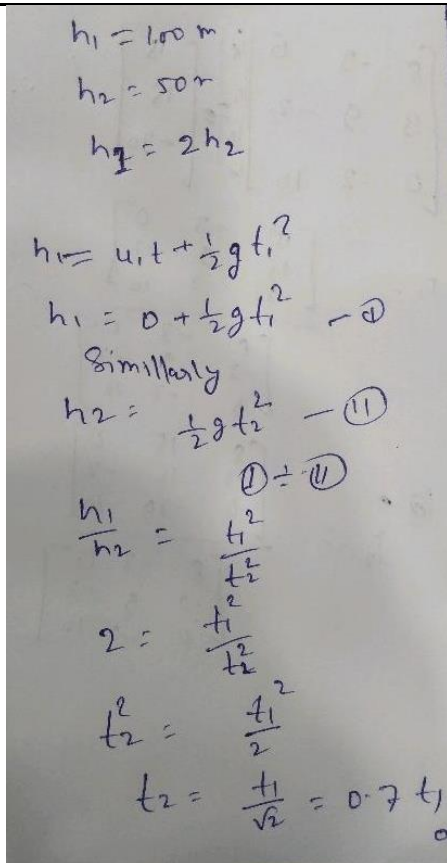 h₁ = 1.00 m.
h₂ = 50 m
h₁ = 2h₂
h₁ = u₁t + ½ g t₁²
h₁ = 0 + ½ g t₁² - Ⓘ
Simillarly
h₂ = ½ g t₂² - Ⓘⓘ
Ⓘ ÷ Ⓘⓘ
h₁/h₂ = t₁²/t₂²
2 = t₁²/t₂²
t₂² = t₁²/2
t₂ = t₁/√2 = 0.7 t₁